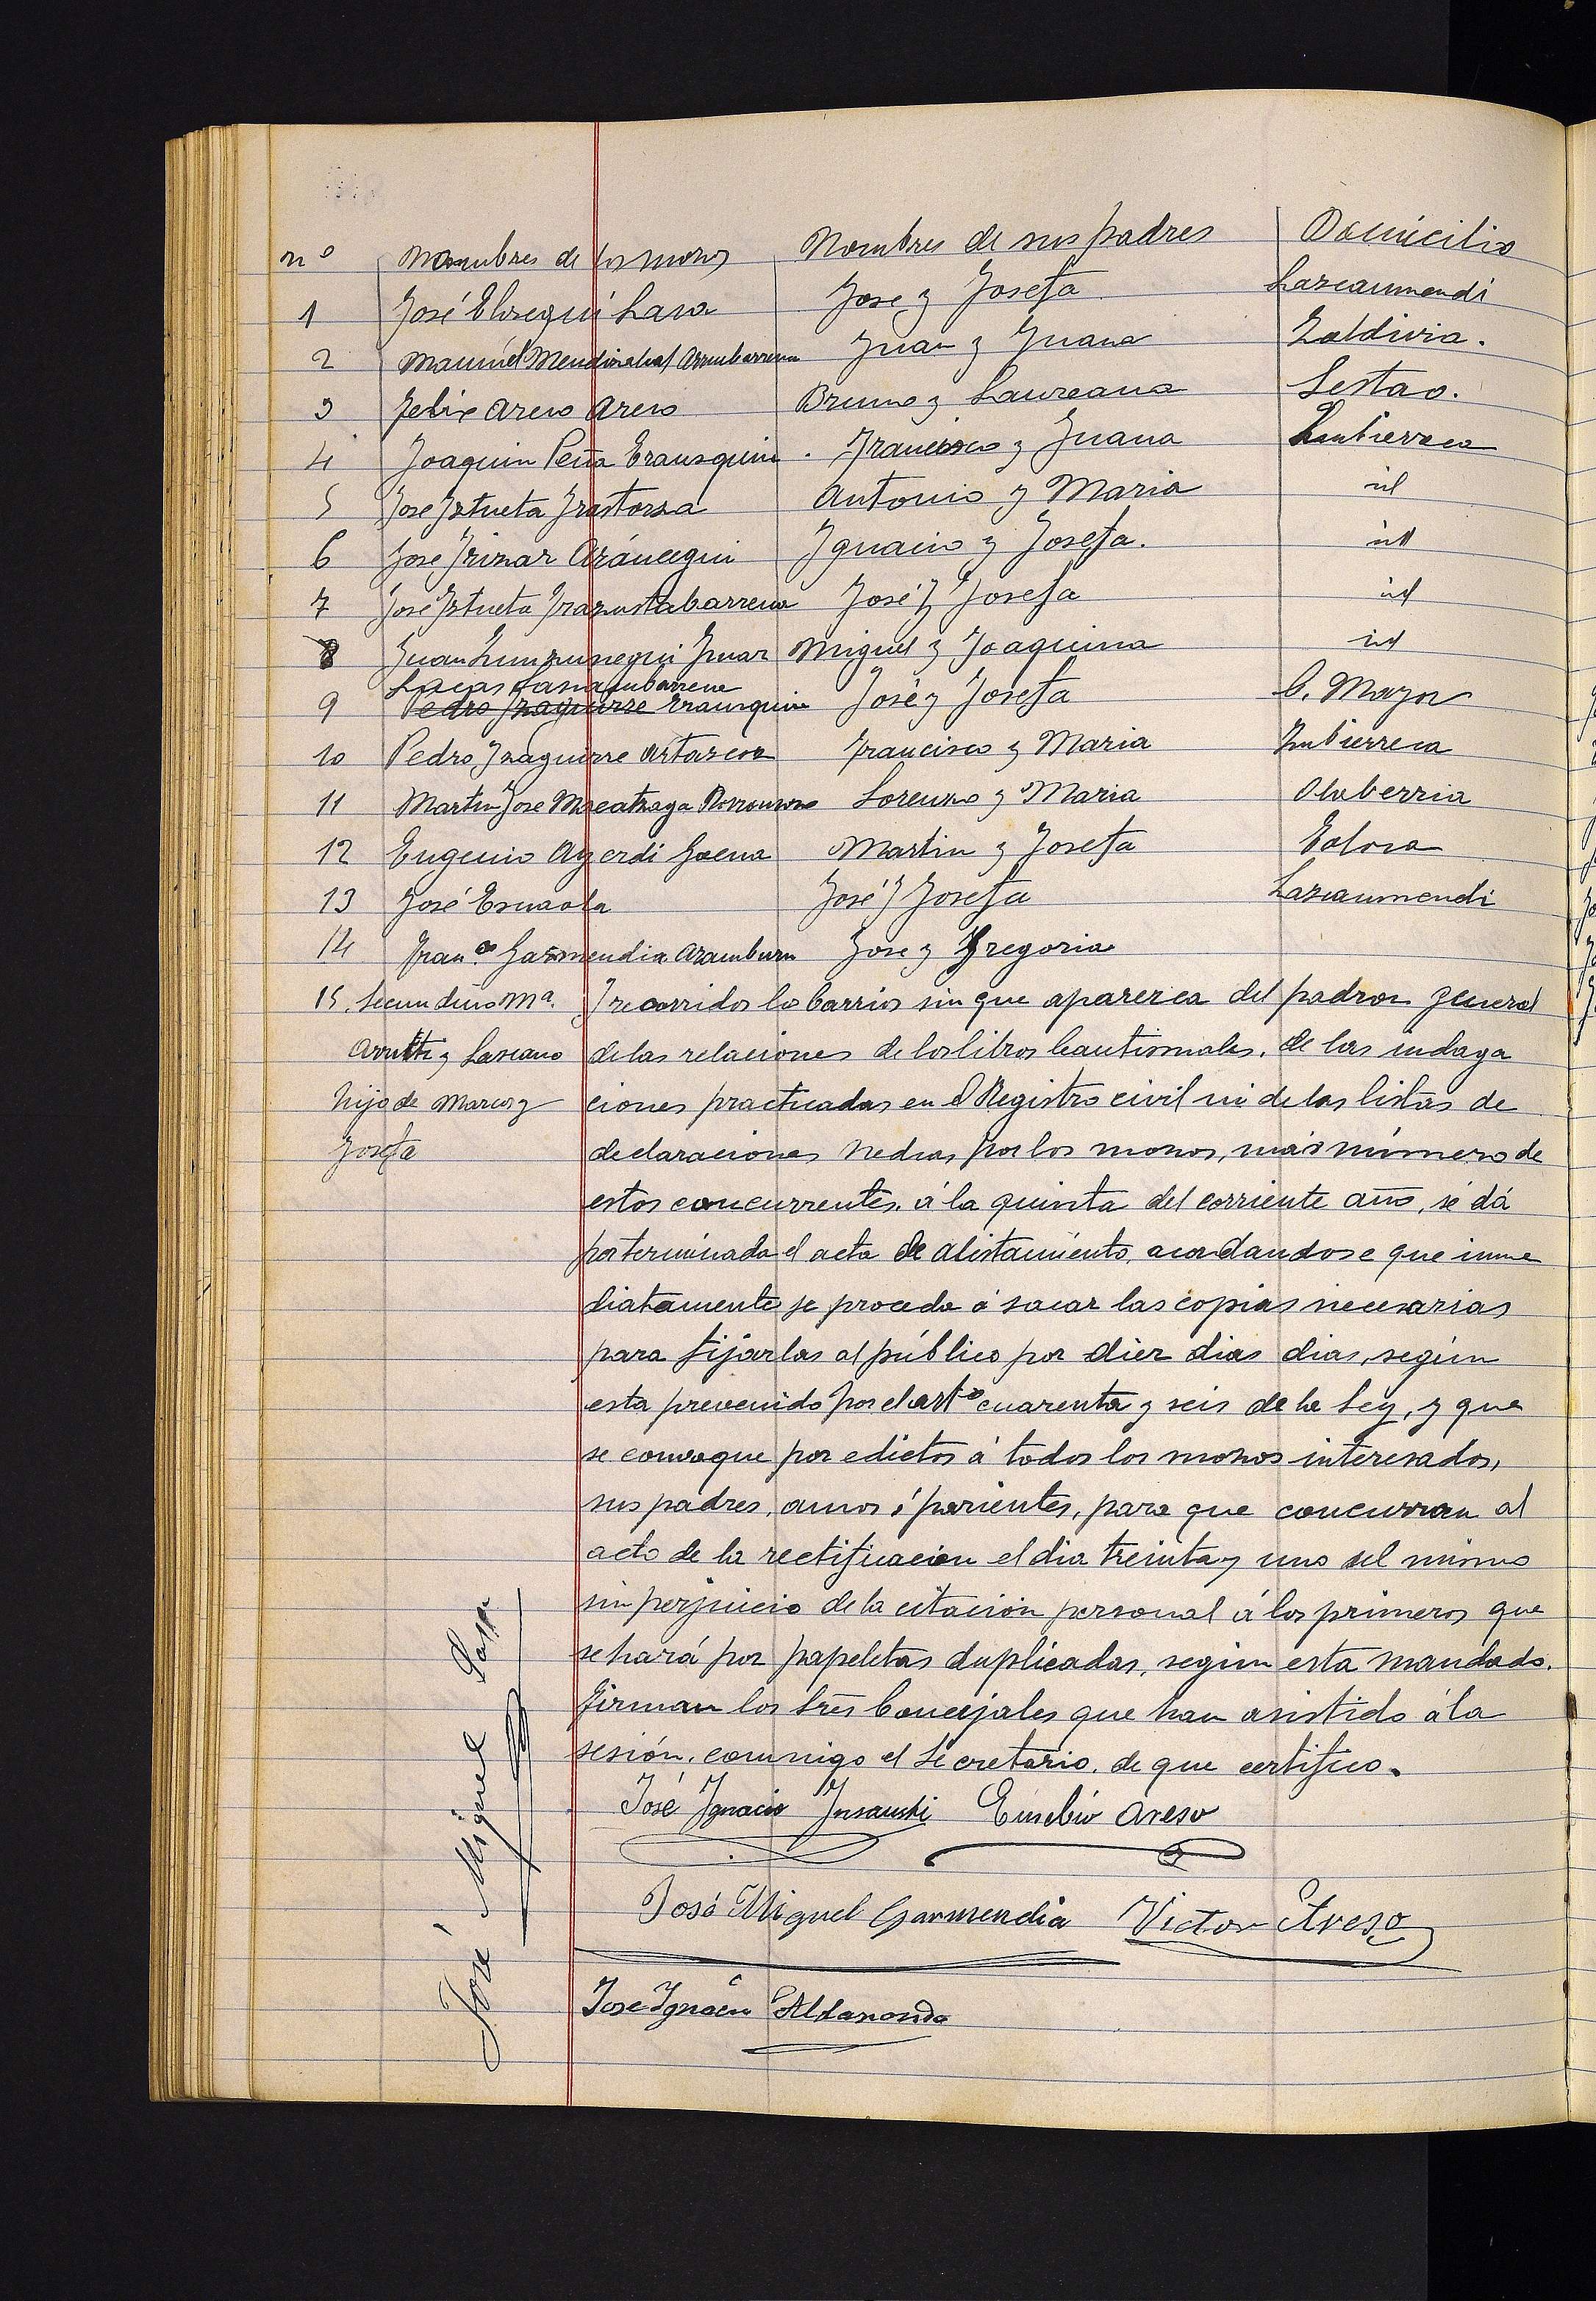 nº Nombres de los mozos Nombres de sus padres Domicilio
1 José Elosegui Lasa Jose y Josefa Lazcaumendi
2 Manuel Mendizabal Arrubarrena Juan y Juana Zaldivia.
3 Felix Areso Areso Bruno y Laureana Sestao.
4 Joaquin Peña Erausquin. Francisco y Juana Zubierreca
5 Jose Iztueta Antonio y Maria id
6 Jose Irizar Aráncegui Ignacio y Josefa. id
7 José Iztueta Irazustabarrena José y Josefa id
8 Juan Miguel y Joaquina id
Lucas
9 Pedro Izaguirre Erausquin José y Josefa C. Mayor
10 Pedro Izaguirre Artazcoz Francisco y Maria Zubierreca
11 Martin Jose Macatzaga Lorenzo y Maria Olaberria
12 Eugenio Ayerdi Goena Martin y Josefa Tolosa
13 José Esnaola José y Josefa Lazcaumendi
14 Franco Garmendia Aramburu Jose y Gregoria
15. Secundino Mª. Y recorridos los barrios sin que aparezca del padron general
Arruti y Lazcano de las relaciones de los libros bautismales, de las indaga
hijo de Marcos y ciones practicadas en el Registro civil ni de las listas de
Josefa declaraciones hechas por los mozos, más número de
estos concurrentes á la quinta del corriente año, se dá
por terminada el acta de alistamiento, acordandose que inme
diatamente se proceda á sacar las copias necesarias
para fijarlas al público por diez dias dias, según
esta prevenido por el artº cuarenta y seis de la Ley, y que
se convoque por edictos á todos los mozos interesados,
sus padres, amos ó parientes, para que concurran al
acto de la rectificacion el dia treinta y uno del mismo
sin perjuicio de la citación personal á los primeros que
se hará por papeletas duplicadas, segun esta mandado.
Firman los Sres Concejales que han asistido á la
sesión, conmigo el Secretario, de que certifico.
José Ignacio Insausti Eusebio Areso
José Miguel Garmendia Victor Areso
Jose Ignacio Aldasoro
José Miguel